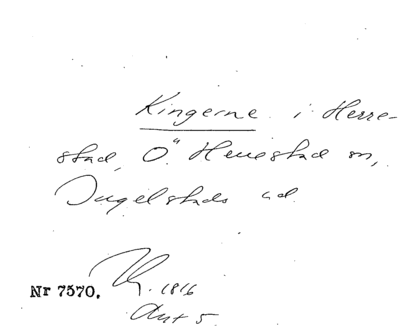 Kingerne i Herre-
stad, Ö. Herrestad sn,
Ingelstads hd
Nr 7570. 1816
Akt 5